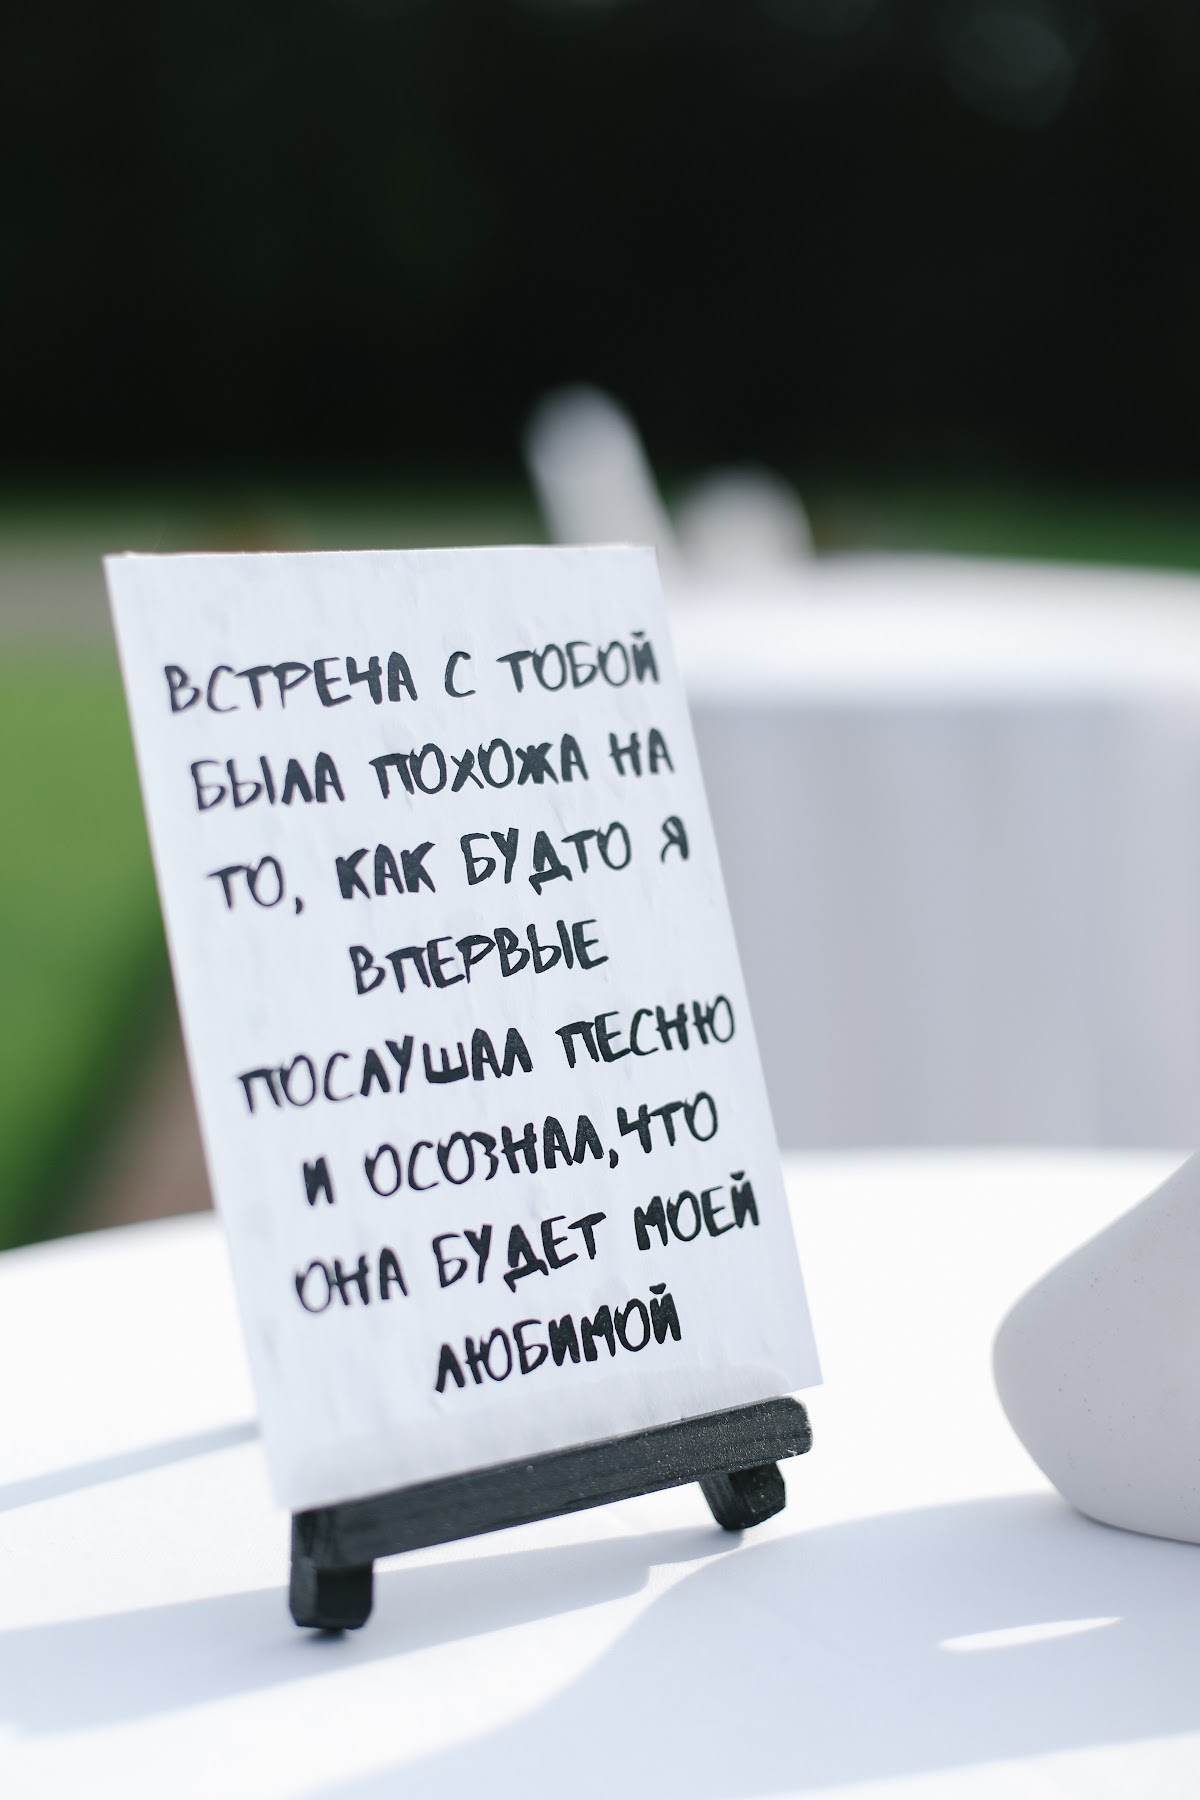 ВСТРЕЧА С ТОБОЙ
БЫЛА ПОХОЖА НА
ТО, КАК БУДТО Я
ВПЕРВЫЕ
ПОСЛУШАЛ ПЕСНЮ
И ОСОЗНАЛ,ЧТО
ОНА БУДЕТ МОЕЙ
ЛЮБИМОЙ